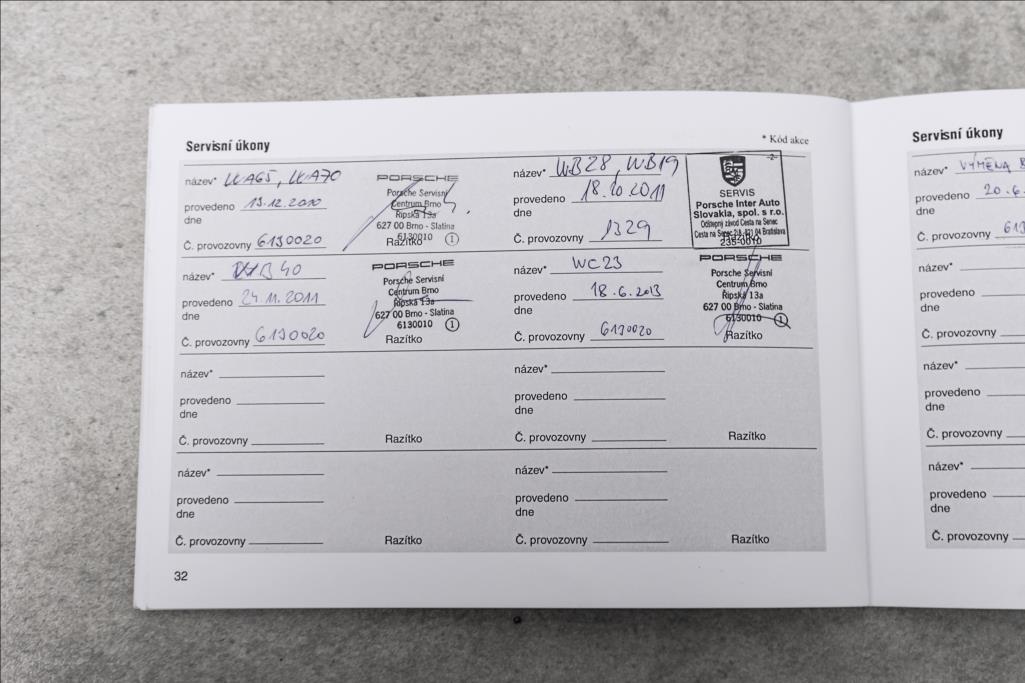 Servisní úkony
* Kód akce
název* WA65, WA70
provedeno 13.12.2010
dne
Č. provozovny 6130020
PORSCHE
Porsche Servisní
Centrum Brno
Řipská 13a
627 00 Brno - Slatina
6130010 1
Razítko
název* WB28, WB19
provedeno 18.10.2011
dne
Č. provozovny 1329
-2-
SERVIS
Porsche Inter Auto
Slovakia, spol. s r.o.
Odštepný závod Cesta na Senec
Cesta na Senec 2/B, 821 04 Bratislava
235-0010
Razítko
název* WB40
provedeno 24.11.2011
dne
Č. provozovny 6130020
PORSCHE
Porsche Servisní
Centrum Brno
Řipská 13a
627 00 Brno - Slatina
6130010 1
Razítko
název* WC23
provedeno 18.6.2013
dne
Č. provozovny 6130020
PORSCHE
Porsche Servisní
Centrum Brno
Řipská 13a
627 00 Brno - Slatina
6130010 1
Razítko
název*
provedeno
dne
Č. provozovny
Razítko
název*
provedeno
dne
Č. provozovny
Razítko
název*
provedeno
dne
Č. provozovny
Razítko
název*
provedeno
dne
Č. provozovny
Razítko
32
Servisní úkony
název* VÝMĚNA
provedeno 20.6.
dne
Č. provozovny 613
název*
provedeno
dne
Č. provozovny
název*
provedeno
dne
Č. provozovny
název*
provedeno
dne
Č. provozovny